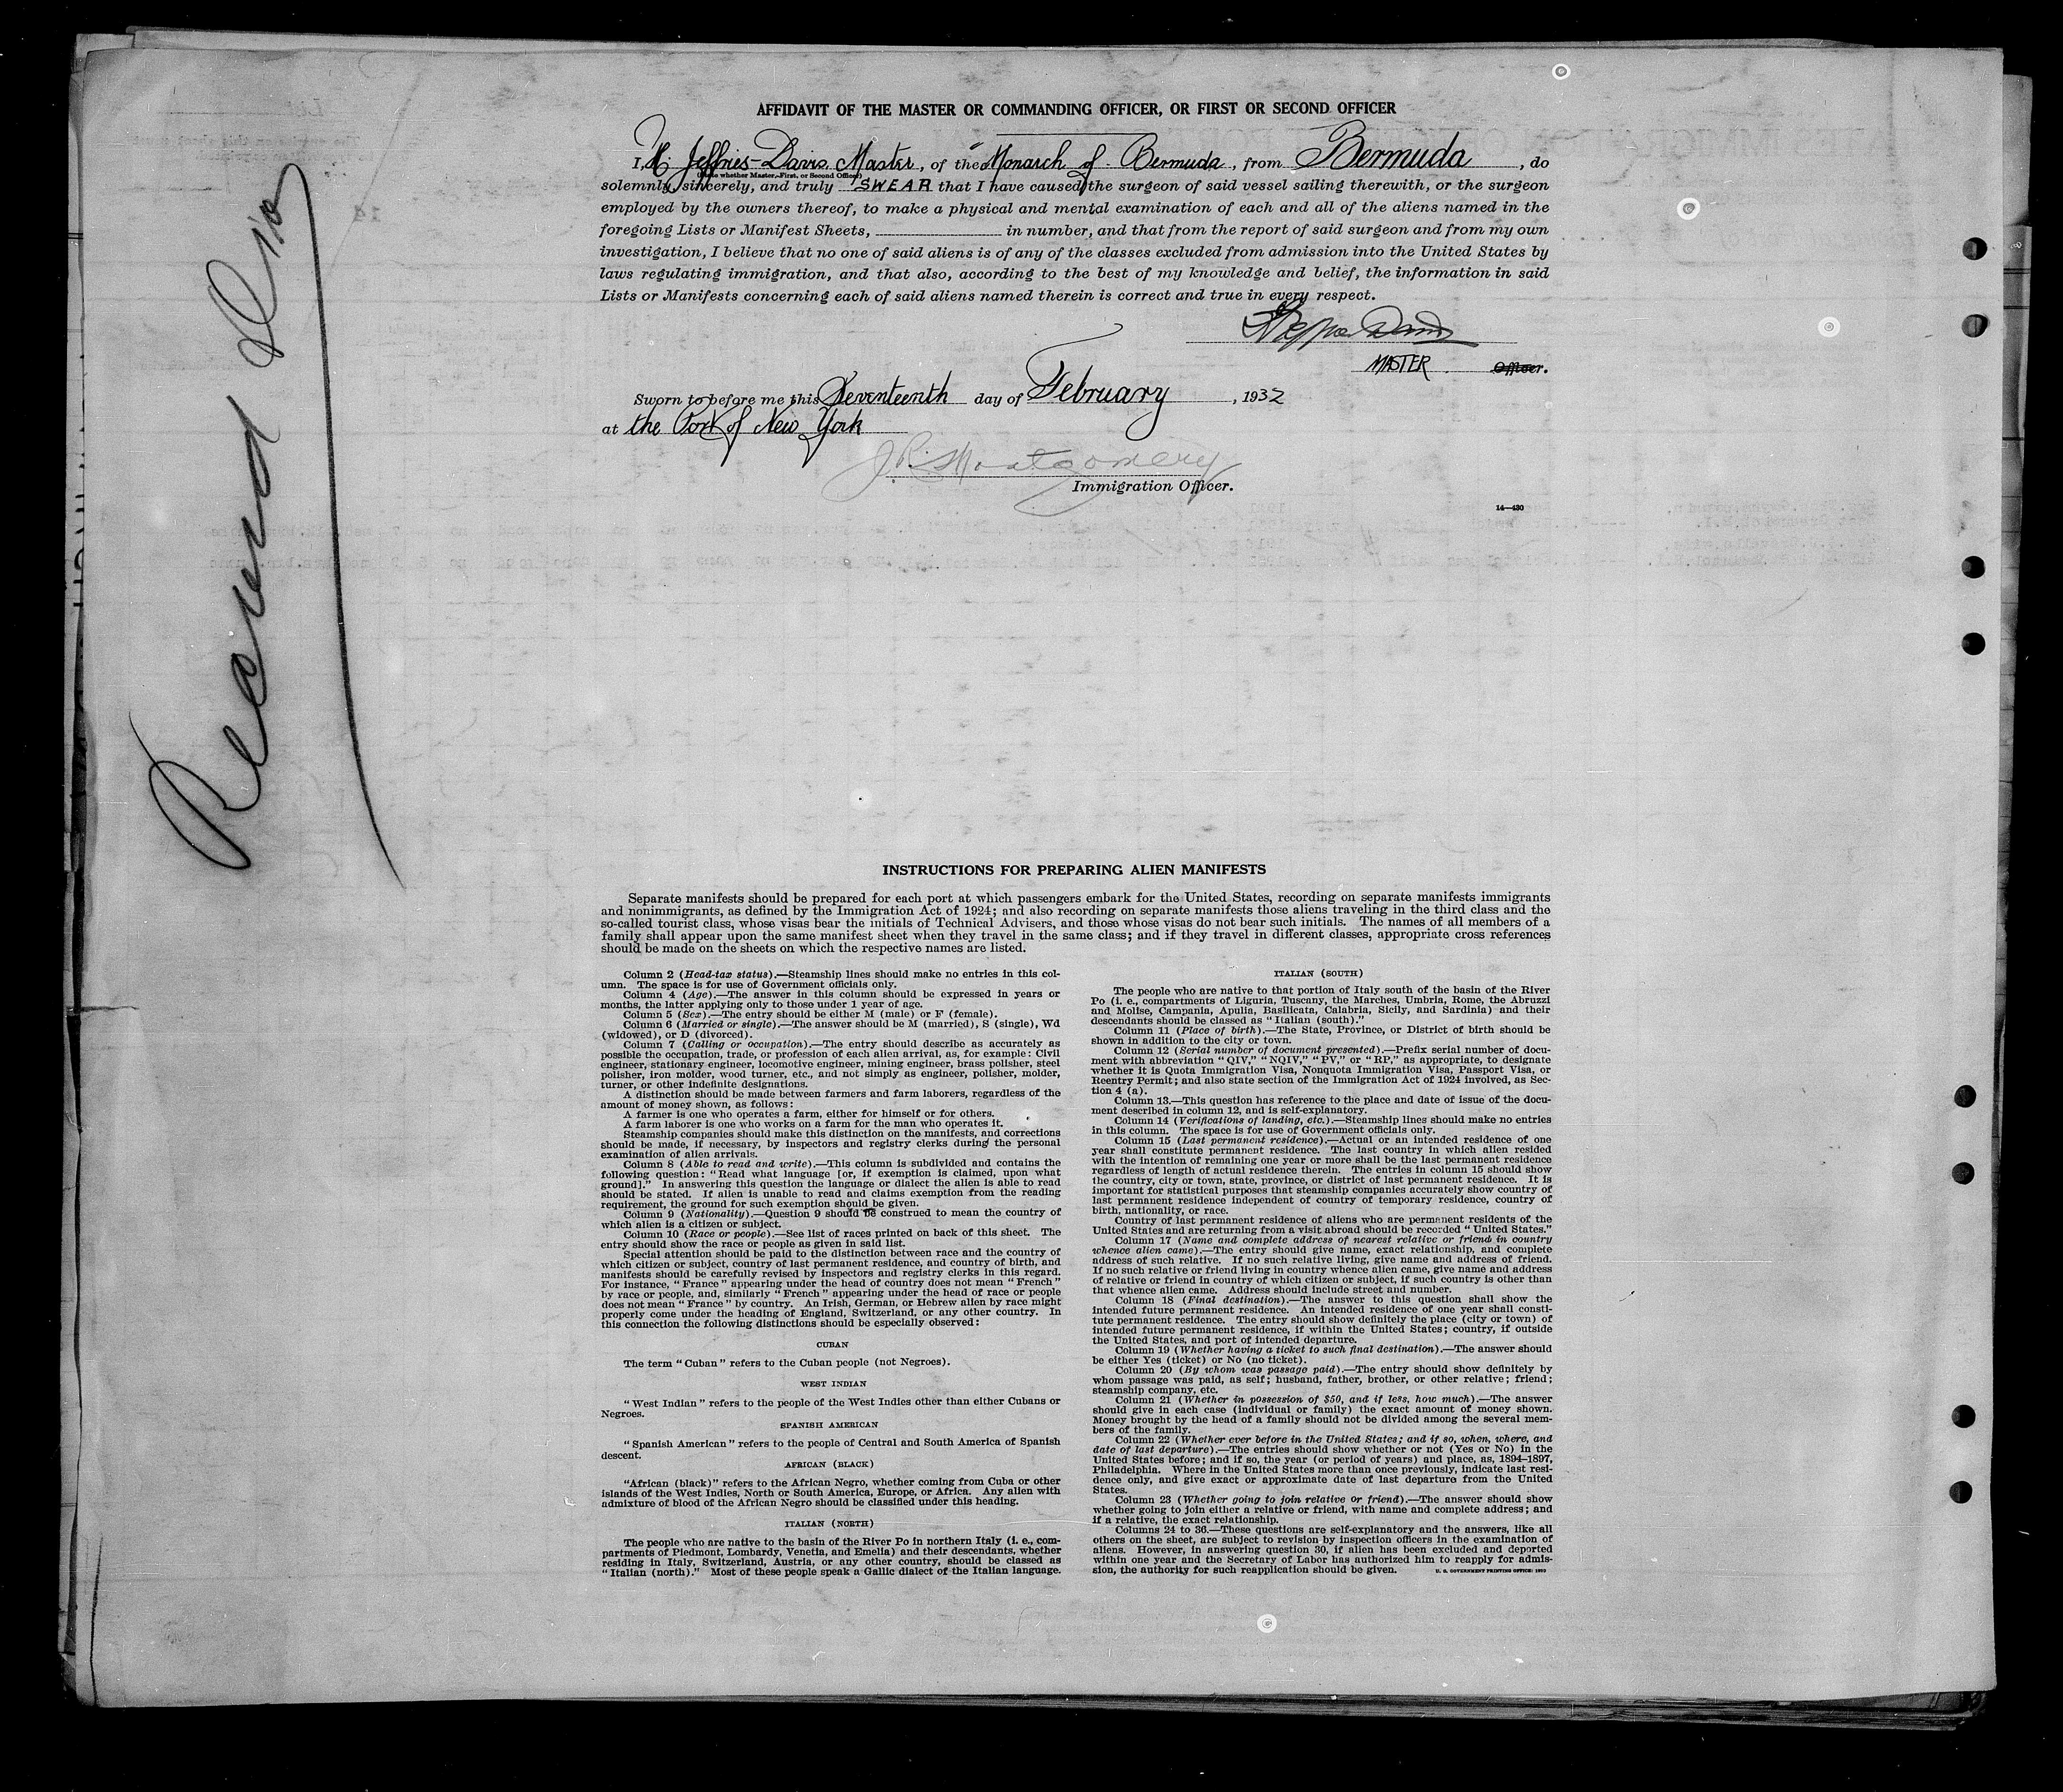 AFFIDAVIT OF THE MASTER OR COMMANDING OFFICER, OR FIRST OR SECOND OFFICER
I, H. Jeffries-Davis, Master, of the Monarch of Bermuda, from Bermuda, do
(State whether Master, First, or Second Officer)
solemnly, sincerely, and truly SWEAR that I have caused the surgeon of said vessel sailing therewith, or the surgeon
employed by the owners thereof, to make a physical and mental examination of each and all of the aliens named in the
foregoing Lists or Manifest Sheets, in number, and that from the report of said surgeon and from my own
investigation, I believe that no one of said aliens is of any of the classes excluded from admission into the United States by
laws regulating immigration, and that also, according to the best of my knowledge and belief, the information in said
Lists or Manifests concerning each of said aliens named therein is correct and true in every respect.
MASTER Officer.
Sworn to before me this Seventeenth day of February, 1932
at the Port of New York
J. R. Montgomery
Immigration Officer.
14—430
Record
INSTRUCTIONS FOR PREPARING ALIEN MANIFESTS
Separate manifests should be prepared for each port at which passengers embark for the United States, recording on separate manifests immigrants
and nonimmigrants, as defined by the Immigration Act of 1924; and also recording on separate manifests those aliens traveling in the third class and the
so-called tourist class, whose visas bear the initials of Technical Advisers, and those whose visas do not bear such initials. The names of all members of a
family shall appear upon the same manifest sheet when they travel in the same class; and if they travel in different classes, appropriate cross references
should be made on the sheets on which the respective names are listed.
Column 2 (Head-tax status).—Steamship lines should make no entries in this col-
umn. The space is for use of Government officials only.
Column 4 (Age).—The answer in this column should be expressed in years or
months, the latter applying only to those under 1 year of age.
Column 5 (Sex).—The entry should be either M (male) or F (female).
Column 6 (Married or single).—The answer should be M (married), S (single), Wd
(widowed), or D (divorced).
Column 7 (Calling or occupation).—The entry should describe as accurately as
possible the occupation, trade, or profession of each alien arrival, as, for example: Civil
engineer, stationary engineer, locomotive engineer, mining engineer, brass polisher, steel
polisher, iron molder, wood turner, etc., and not simply as engineer, polisher, molder,
turner, or other indefinite designations.
A distinction should be made between farmers and farm laborers, regardless of the
amount of money shown, as follows:
A farmer is one who operates a farm, either for himself or for others.
A farm laborer is one who works on a farm for the man who operates it.
Steamship companies should make this distinction on the manifests, and corrections
should be made, if necessary, by inspectors and registry clerks during the personal
examination of alien arrivals.
Column 8 (Able to read and write).—This column is subdivided and contains the
following question: "Read what language [or, if exemption is claimed, upon what
ground]." In answering this question the language or dialect the alien is able to read
should be stated. If alien is unable to read and claims exemption from the reading
requirement, the ground for such exemption should be given.
Column 9 (Nationality).—Question 9 should be construed to mean the country of
which alien is a citizen or subject.
Column 10 (Race or people).—See list of races printed on back of this sheet. The
entry should show the race or people as given in said list.
Special attention should be paid to the distinction between race and the country of
which citizen or subject, country of last permanent residence, and country of birth, and
manifests should be carefully revised by inspectors and registry clerks in this regard.
For instance, "France" appearing under the head of country does not mean "French"
by race or people, and, similarly "French" appearing under the head of race or people
does not mean "France" by country. An Irish, German, or Hebrew alien by race might
properly come under the heading of England, Switzerland, or any other country. In
this connection the following distinctions should be especially observed:
CUBAN
The term "Cuban" refers to the Cuban people (not Negroes).
WEST INDIAN
"West Indian" refers to the people of the West Indies other than either Cubans or
Negroes.
SPANISH AMERICAN
"Spanish American" refers to the people of Central and South America of Spanish
descent.
AFRICAN (BLACK)
"African (black)" refers to the African Negro, whether coming from Cuba or other
islands of the West Indies, North or South America, Europe, or Africa. Any alien with
admixture of blood of the African Negro should be classified under this heading.
ITALIAN (NORTH)
The people who are native to the basin of the River Po in northern Italy (i. e., com-
partments of Piedmont, Lombardy, Venetia, and Emelia) and their descendants, whether
residing in Italy, Switzerland, Austria, or any other country, should be classed as
"Italian (north)." Most of these people speak a Gallic dialect of the Italian language.
ITALIAN (SOUTH)
The people who are native to that portion of Italy south of the basin of the River
Po (i. e., compartments of Liguria, Tuscany, the Marches, Umbria, Rome, the Abruzzi
and Molise, Campania, Apulia, Basilicata, Calabria, Sicily, and Sardinia) and their
descendants should be classed as "Italian (south)."
Column 11 (Place of birth).—The State, Province, or District of birth should be
shown in addition to the city or town.
Column 12 (Serial number of document presented).—Prefix serial number of docu-
ment with abbreviation "QIV," "NQIV," "PV," or "RP," as appropriate, to designate
whether it is Quota Immigration Visa, Nonquota Immigration Visa, Passport Visa, or
Reentry Permit; and also state section of the Immigration Act of 1924 involved, as Sec-
tion 4 (a).
Column 13.—This question has reference to the place and date of issue of the docu-
ment described in column 12, and is self-explanatory.
Column 14 (Verifications of landing, etc.).—Steamship lines should make no entries
in this column. The space is for use of Government officials only.
Column 15 (Last permanent residence).—Actual or an intended residence of one
year shall constitute permanent residence. The last country in which alien resided
with the intention of remaining one year or more shall be the last permanent residence
regardless of length of actual residence therein. The entries in column 15 should show
the country, city or town, state, province, or district of last permanent residence. It is
important for statistical purposes that steamship companies accurately show country of
last permanent residence independent of country of temporary residence, country of
birth, nationality, or race.
Country of last permanent residence of aliens who are permanent residents of the
United States and are returning from a visit abroad should be recorded "United States."
Column 17 (Name and complete address of nearest relative or friend in country
whence alien came).—The entry should give name, exact relationship, and complete
address of such relative. If no such relative living, give name and address of friend.
If no such relative or friend living in country whence alien came, give name and address
of relative or friend in country of which citizen or subject, if such country is other than
that whence alien came. Address should include street and number.
Column 18 (Final destination).—The answer to this question shall show the
intended future permanent residence. An intended residence of one year shall consti-
tute permanent residence. The entry should show definitely the place (city or town) of
intended future permanent residence, if within the United States; country, if outside
the United States, and port of intended departure.
Column 19 (Whether having a ticket to such final destination).—The answer should
be either Yes (ticket) or No (no ticket).
Column 20 (By whom was passage paid).—The entry should show definitely by
whom passage was paid, as self; husband, father, brother, or other relative; friend;
steamship company, etc.
Column 21 (Whether in possession of $50, and if less, how much).—The answer
should give in each case (individual or family) the exact amount of money shown.
Money brought by the head of a family should not be divided among the several mem-
bers of the family.
Column 22 (Whether ever before in the United States; and if so, when, where, and
date of last departure).—The entries should show whether or not (Yes or No) in the
United States before; and if so, the year (or period of years) and place, as, 1894–1897,
Philadelphia. Where in the United States more than once previously, indicate last resi-
dence only, and give exact or approximate date of last departure from the United
States.
Column 23 (Whether going to join relative or friend).—The answer should show
whether going to join either a relative or friend, with name and complete address; and
if a relative, the exact relationship.
Columns 24 to 36.—These questions are self-explanatory and the answers, like all
others on the sheet, are subject to revision by inspection officers in the examination of
aliens. However, in answering question 30, if alien has been excluded and deported
within one year and the Secretary of Labor has authorized him to reapply for admis-
sion, the authority for such reapplication should be given.
U. S. GOVERNMENT PRINTING OFFICE: